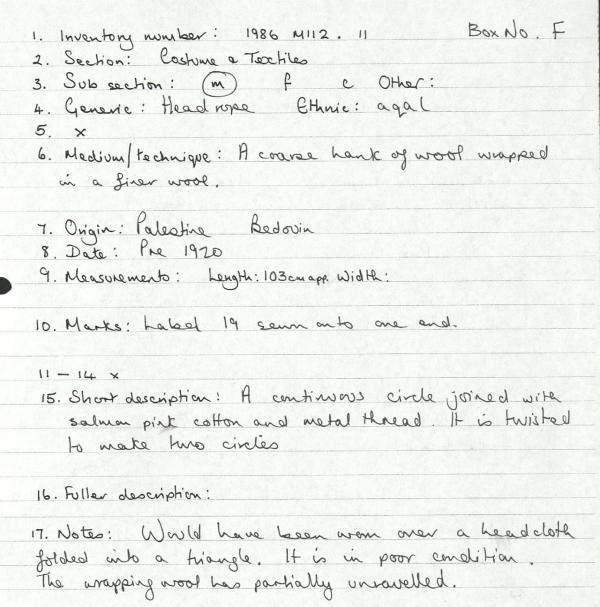 1. Inventory number: 1986 M112. 11 Box No. F
2. Section: Costume & Textiles
3. Sub section: m f c Other:
4. Generic: Head rope Ethnic: aqal
5. x
6. Medium/technique: A coarse hank of wool wrapped
in a finer wool.
7. Origin: Palestine Bedouin
8. Date: Pre 1920
9. Measurements: Length: 103cm app. Width:
10. Marks: Label 19 sewn onto one end.
11 - 14 x
15. Short description: A continuous circle joined with
salmon pink cotton and metal thread. It is twisted
to make two circles
16. Fuller description:
17. Notes: Would have been worn over a headcloth
folded into a triangle. It is in poor condition.
The wrapping wool has partially unravelled.